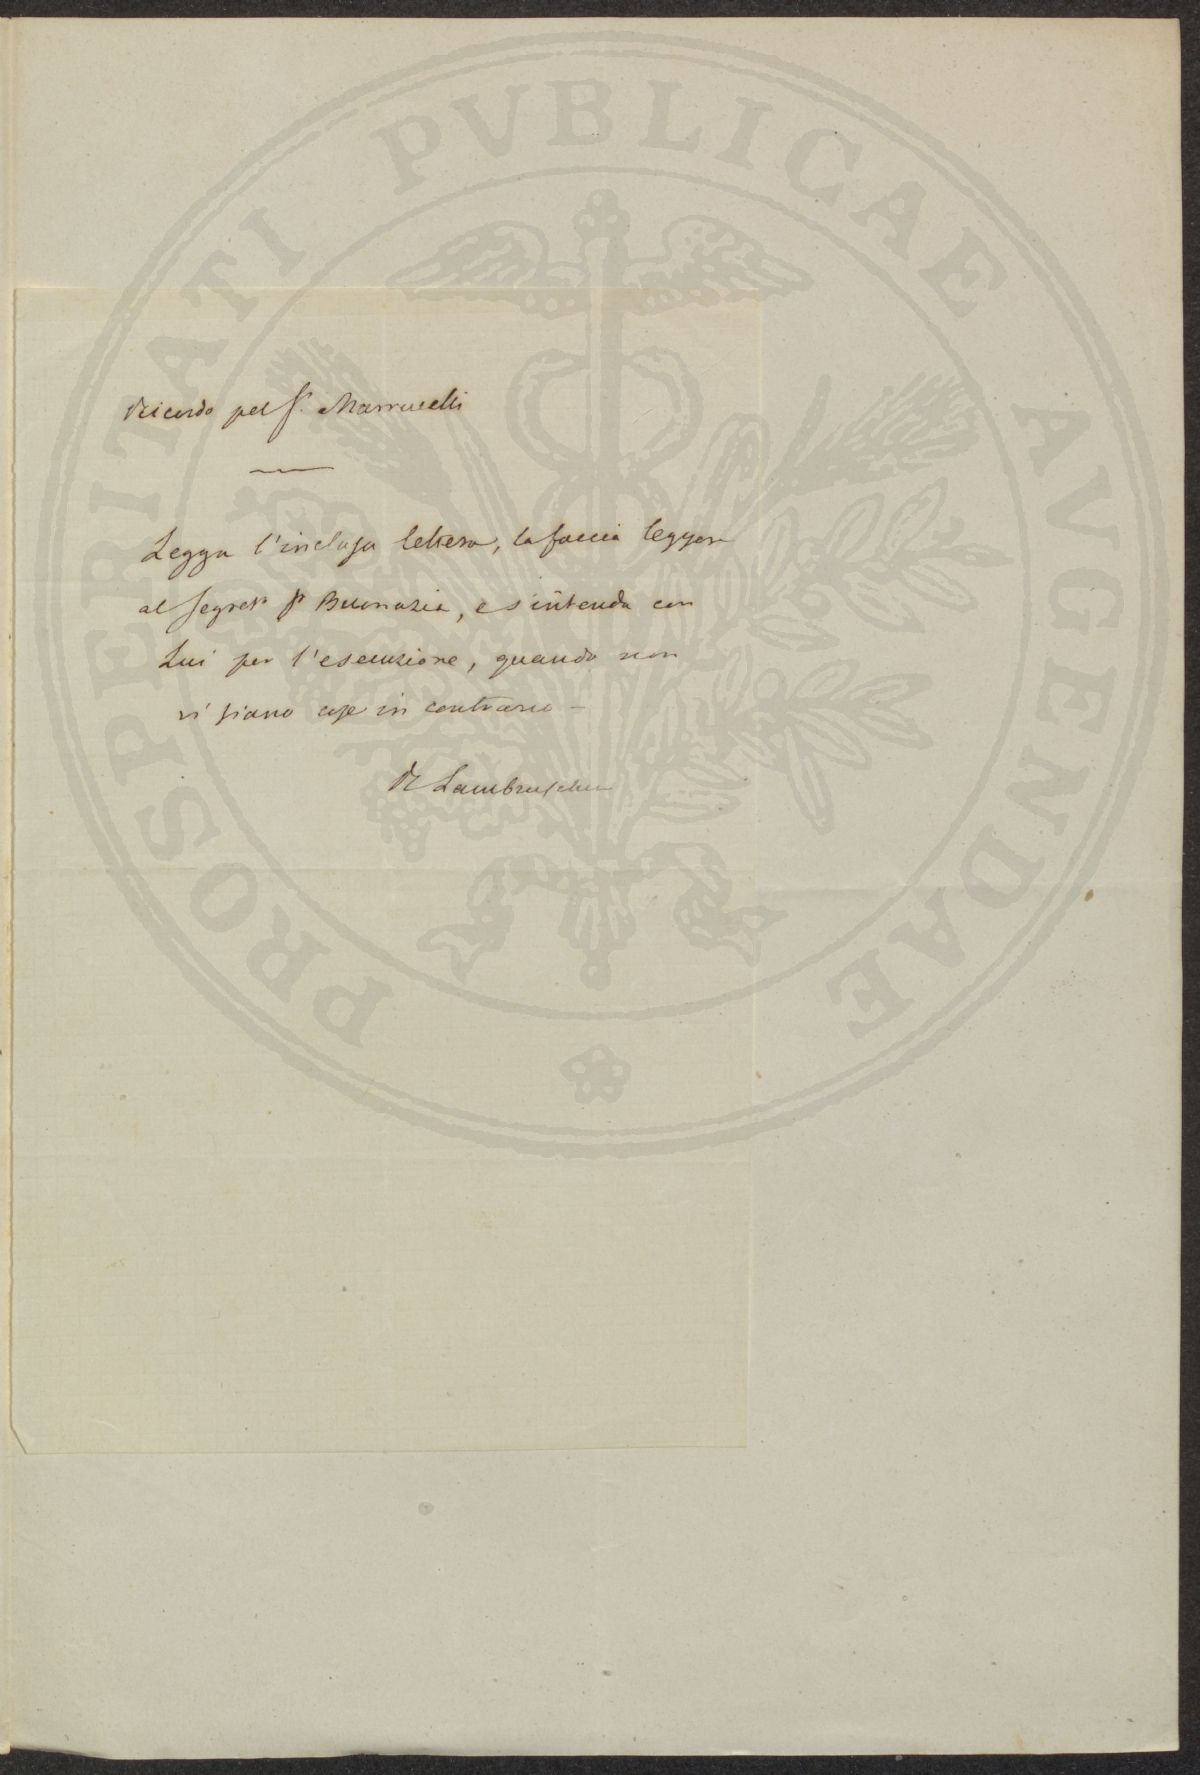 PROSPERITATI PVBLICAE AVGENDAE
Ricordo pel Sr. Marrucelli
Legga l'inclusa lettera, la faccia leggere
al Segret. Buonazia, e s'intenda con
Lui per l'esecuzione, quando non
vi siano cose in contrario –
R Lambruschini